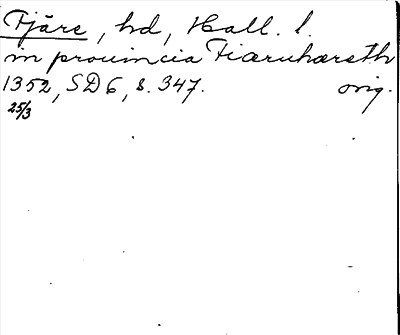 Fjäre, hd, Hall. l.
in prouincia Fiæruhæreth
1352, SD 6, s. 347. orig.
25/3